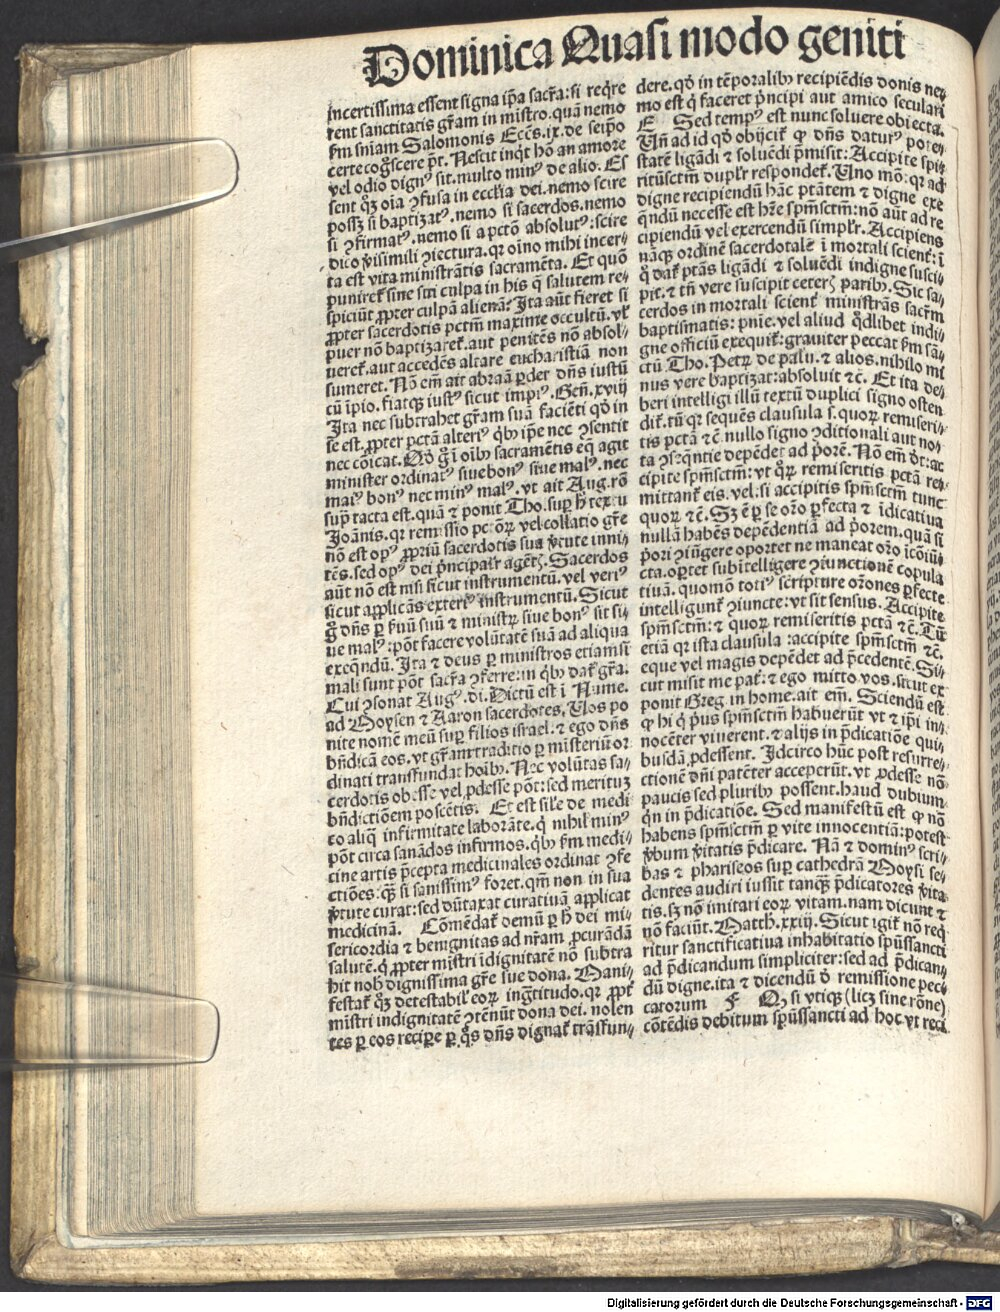 Dominica Quasi modo geniti
incertissima essent signa ip̄a sacr̄a: si reqr̄e
rent sanctitatis gr̄am in mīstro. quā nemo
fm sn̄iam Salomonis Ecc̄s. ix. de seip̄o
certe coḡscere pt̄. Nescit inqt hō an amore
vel odio dignꝰ sit. multo minꝰ de alio. Es
sent qꝫ oīa ꝯfusa in eccl̄ia dei. nemo scire
possꝫ si baptizatꝰ. nemo si sacerdos. nemo
si ꝯfirmatꝰ. nemo si a pctō absolutꝰ: scire
dico v̓isimili ꝯiectura. qꝛ oīno mihi incer⸗
ta est vita ministrātis sacramēta. Et quō
puniret᷑ sine sui culpa in his q̄ salutem re⸗
spiciūt ꝓpter culpā alienā? Ita aūt fieret si
ꝓpter sacerdotis pctm̄ maxime occultū. vl̓
puer nō baptizaret᷑. aut penitēs nō absol⸗
ueret᷑. aut accedēs altare eucharistiā non
sumeret. Nō em̄ ait abraā ꝑdet dn̄s iustū
cū īpio. fiatqꝫ iustꝰ sicut impiꝰ. Gen̄. xviij
Ita nec subtrahet gr̄am suā faciēti qd̓ in
se est. ꝓpter pctā alteriꝰ qb̓ ip̄e nec ꝯsentit
nec cōicat. Qd̓ g̊ī oīb̓ sacramētis eq̄ agit
minister ordinatꝰ siue bonꝰ siue malꝰ. nec
maiꝰ bonꝰ nec minꝰ malꝰ. vt ait Aug. rō
sup̄ tacta est. quā ⁊ ponit Tho. sup̄ h̓ textu
Joānis. qꝛ remissio pctōꝝ vel collatio gr̄e
nō est opꝰ ꝓpriū sacerdotis sua v̓tute inni⸗
tēs. sed opꝰ dei pn̓cipal̓r agētꝭ. Sacerdos
aūt nō est nisi sicut instrumentū. vel veriꝰ
sicut applicās exteriꝰ instrumentū. Sicut
g̊ dn̄s ꝑ ẜuū suū ⁊ ministꝝ siue bonꝰ sit si⸗
ue malꝰ: pōt facere volūtatē suā ad aliqua
exeqn̄dū. Ita ⁊ deus ꝑ ministros etiamsi
mali sunt pōt sacr̄a ꝯferre: in qb̓ dat᷑ gr̄a.
Cui ꝯsonat Augꝰ. di. Dictū est ī Nume.
ad Moysen ⁊ Aaron sacerdotes. Uos po
nite nomē meū sup̄ filios israel. ⁊ ego dn̄s
bn̄dicā eos. vt gr̄am traditio ꝑ misteriū or
dinati transfundat hoīb̓. Nec volūtas sa⸗
cerdotis obesse vel ꝓdesse pōt: sed meritūꝫ
bn̄dictiōem poscētis. Et est sil̓e de medi
co aliq̄ infirmitate laborāte. q̄ nihil minꝰ
pōt circa sanādos infirmos. qb̓ fm medi⸗
cine artis p̄cepta medicinales ordinat ꝯfe
ctiōes: qꝫ si sanissimꝰ foret. qm̄ non in sua
v̓tute curat: sed dūtaxat curatiuā applicat
medicinā. Cōmēdat᷑ demū ꝑ h̓ dei mi⸗
sericordia ⁊ benignitas ad nr̄am ꝓcurādā
salutē. q̄ ꝓpter mīstri īdignitatē nō subtra
hit nob̓ dignissima gr̄e sue dona. Mani⸗
festat᷑ qꝫ detestabil̓ eoꝝ ingtitudo. qꝛ ꝓpt̓
mīstri indignitatē ꝯtēnūt dona dei. nolen
tes ꝑ eos recipe ꝑ q̊s dn̄s dignat᷑ trāsfun⸗
dere. qd̓ in tēporalib̓ recipiēdis donis ne⸗
mo est q̄ faceret pn̓cipi aut amico seculari
E Sed tempꝰ est nunc soluere obiecta.
Un̄ ad id qd̓ obijcit᷑ ꝙ dn̄s daturꝰ pote⸗
statē ligādi ⁊ soluēdi p̄misit: Accipite spi⸗
ritūsctm̄ dupl̓r respondet᷑. Uno mō: qꝛ ad
digne recipiendū hāc ptātem ⁊ digne exe
qn̄dū necesse est hr̄e spm̄sctm̄: nō aūt ad re
cipiendū vel exercendū simpl̓r. Accipiens
nāqꝫ ordinē sacerdotalē ī mortali scient̓: ī
q̊ dat᷑ ptās ligādi ⁊ soluēdi indigne susci⸗
pit. ⁊ tn̄ vere suscipit ceterꝭ parib̓. Sic sa⸗
cerdos in mortali scient̓ ministrās sacr̄m
baptismatis: pnīe. vel aliud qdlibet indi⸗
gne officiū exequit᷑: grauiter peccat fm sā⸗
ctū Tho. Petꝝ de palu. ⁊ alios. nihilo mi
nus vere baptizat: absoluit ⁊c̄. Et ita de⸗
beri intelligi illū textū duplici signo osten
dit᷑. tū qꝛ sequēs clausula s. quoꝝ remiseri⸗
tis pctā ⁊c̄ nullo signo ꝯditionali aut no⸗
ta ꝯseqn̄tie depēdet ad p̓orē. Nō em̄ d̓t: ac
cipite spm̄sctm̄: vt qꝝ remiseritis pctā re⸗
mittant᷑ eis. vel: si accipitis spm̄sctm̄ tunc
quoꝝ ⁊c̄. Sꝫ ē ꝑ se oro ꝑfecta ⁊ īdicatiua
nullā habēs depēdentiā ad p̓orem. quā si
p̓ori ꝯiūgere oportet ne maneat oro icōiū⸗
cta. oꝑtet subītelligere ꝯiunctionē copula
tiuā. quomō totiꝰ scripture or̄ones ꝑfecte
intelligunt᷑ ꝯiuncte: vt sit sensus. Accipite
spm̄sctm̄: ⁊ quoꝝ remiseritis pctā ⁊c̄. Tū
etiā qꝛ ista clausula: accipite spm̄sctm̄ ⁊c̄.
eque vel magis depēdet ad p̄cedentē. Si⸗
cut misit me pat̓: ⁊ ego mitto vos. sicut ex
ponit Greg in home. ait em̄. Sciendū est
ꝙ hi q̄ pͥus spm̄sctm̄ habuerūt vt ⁊ ip̄i in⸗
nocēter viuerent. ⁊ alijs in p̄dicatiōe qui⸗
busdā ꝓdessent. Idcirco hūc post resurre⸗
ctionē dn̄i patēter acceperūt. vt ꝓdesse nō
paucis sed plurib̓ possent. haud dubium
qn̄ in p̄dicatiōe. Sed manifestū est ꝙ nō
habens spm̄sctm̄ ꝑ vite innocentiā: potest
v̓bum v̓itatis p̄dicare. Nā ⁊ dominꝰ scri⸗
bas ⁊ phariseos sup̄ cathedrā Moysi se⸗
dentes audiri iussit tanqꝫ p̄dicatores v̓ita
tis. sꝫ nō imitari eoꝝ vitam. nam dicunt ⁊
nō faciūt. Matth. xxiij. Sicut igit᷑ nō req̄
ritur sanctificatiua inhabitatio sp̄ussancti
ad p̄dicandum simpliciter: sed ad p̄dican⸗
dū digne. ita ⁊ dicendū d̓ remissione pecc
catorum F Qꝫ si vtiqꝫ (licꝫ sine rōne)
cōtēdis debitum sp̄ussancti ad hoc vt reci
Digitalisierung gefördert durch die Deutsche Forschungsgemeinschaft - DFG